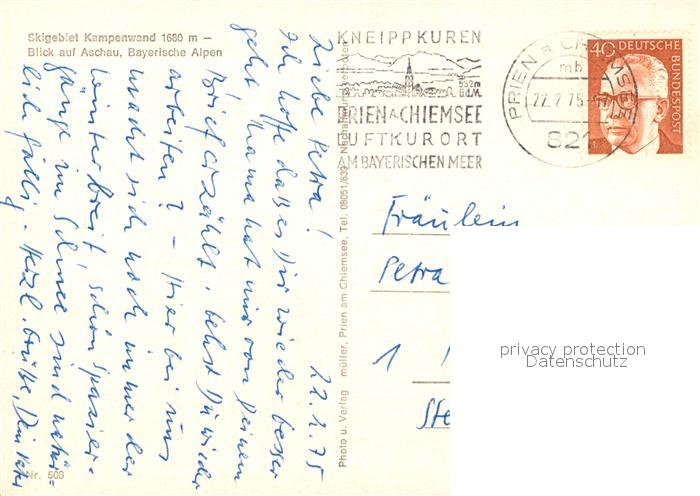 Skigebiet Kampenwand 1680 m –
Blick auf Aschau, Bayerische Alpen
22.2.75
Liebe Petra!
Ich hoffe dass es Dir wieder besser
geht. Mama hat mir von Deinem
Brief erzählt. Gehst Du wieder
arbeiten? – Hier bei uns
macht sich noch immer der
Winter breit. Schöne Spazier-
gänge im Schnee sind natür-
lich fällig. Herzl. Grüße, Dein
Nr. 508
Photo u. Verlag müller, Prien am Chiemsee, Tel. 08051/639 Nachahmung verboten
KNEIPPKUREN
532m
ü.d.M.
PRIEN A CHIEMSEE
LUFTKURORT
AM BAYERISCHEN MEER
PRIEN a CHIEMSEE
mb
22.2.75
821
40 DEUTSCHE
BUNDESPOST
Fräulein
Petra
1
Ste
privacy protection
Datenschutz